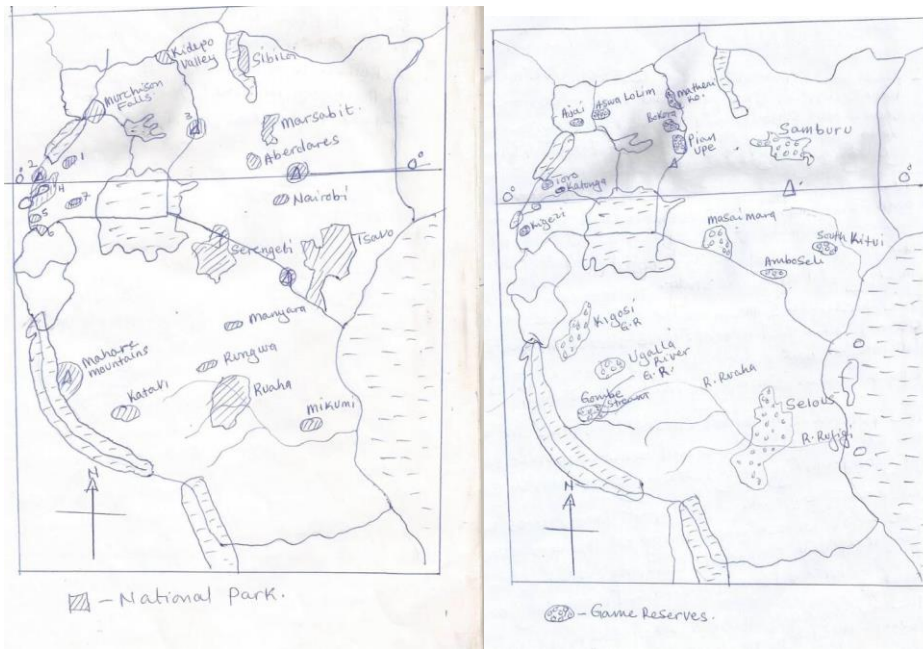 Kidepo
Valley
Sibiloi
Murchison
Falls.
Marsabit.
3
Aberdares
2
1
0°
0°
4
Nairobi
7
5
6
Serengeti
Tsavo
Manyara
Rungwa
Mahare
mountains
Katavi
Ruaha
Mikumi
N
- National Park.
Ajai
Aswa Lolim
Matheni
Ko.
Bokora
Pian
Upe
Samburu
Toro
Katonga
0°
0°
Kigezi
Masaimara
South Kitui
Amboseli
Kigosi
G.R
Ugalla
River
G.R.
Gombe
R. Ruaha
Selous
R. Rufigi
N
- Game Reserves.